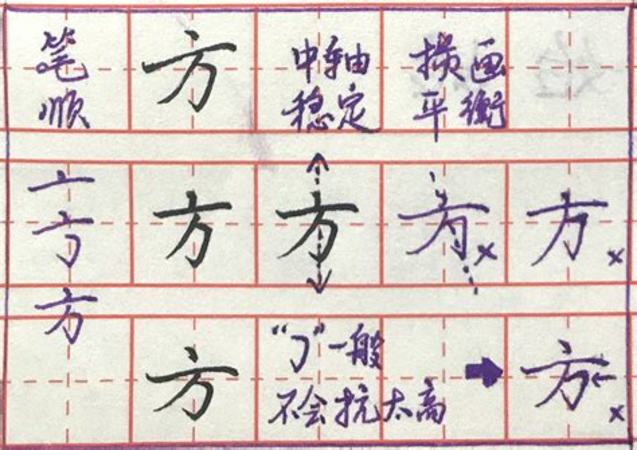 笔顺
方
中轴
稳定
横画
平衡
亠
方
方
方
方 ×
方 ×
方
"㇆"一般
不会抗太高
方 ×